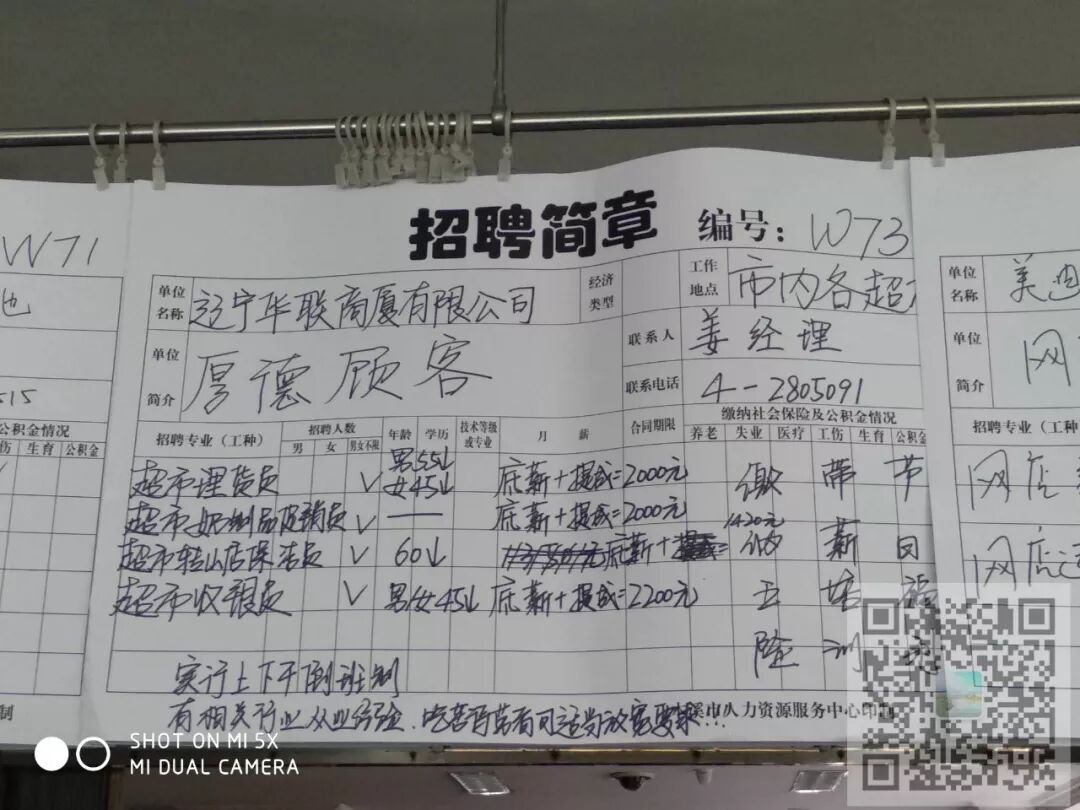 招聘简章 编号: W73
W71
单位名称 辽宁华联商厦有限公司 经济类型 工作地点 市内各超
单位简介 厚德顾客 联系人 姜经理
联系电话 4-2805091
招聘专业(工种) 招聘人数 男 女 男女不限 年龄 学历 技术等级或专业 月薪 合同期限 缴纳社会保险及公积金情况 养老 失业 医疗 工伤 生育 公积金
超市理货员 √ 男55↓ 女45↓ 底薪+提成=2000元
超市 √ — 底薪+提成=2000元
超市 店保洁员 √ 60↓ 底薪+ 1420元
超市收银员 √ 男女45↓ 底薪+提成=2200元
缴纳五险
带薪培训
节日福
实行上下午倒班制
有相关行业从业经验、吃苦 者可适当放宽要求
溪市人力资源服务中心印制
公积金情况
伤 生育 公积金
制
单位名称 美
单位简介 网
招聘专业(工种)
网店
网店
SHOT ON MI 5X
MI DUAL CAMERA